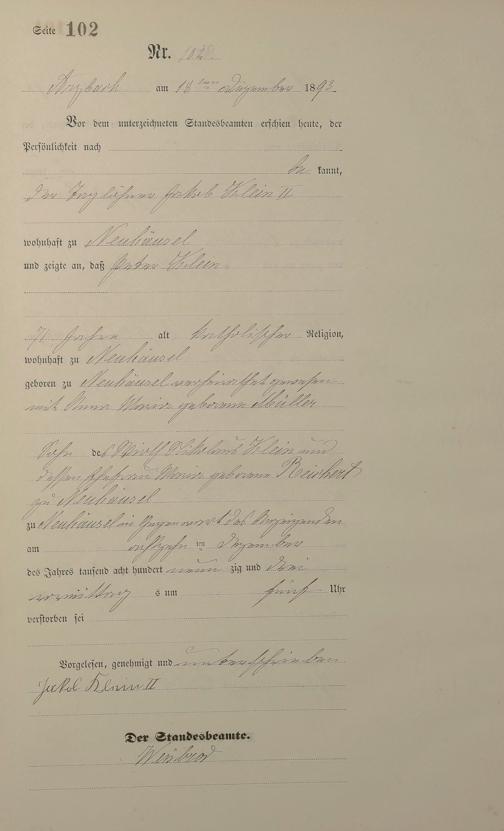 Seite 102
Nr. 102
Arzbach am 18ten Dezember 1893.
Vor dem unterzeichneten Standesbeamten erschien heute, der
Persönlichkeit nach
be kannt,
der Taglöhner Jakob Klein II
wohnhaft zu Neuhäusel
und zeigte an, daß Peter Klein
71 Jahre alt katholischer Religion,
wohnhaft zu Neuhäusel
geboren zu Neuhäusel verheirathet gewesen
mit Anna Maria geborene Müller
Sohn des Adolf Nikolaus Klein und
dessen Ehefrau Maria geborene Reichert
zu Neuhäusel
zu Neuhäusel in Gegenwart des Anzeigenden
am achtzehnten Dezember
des Jahres tausend acht hundert neun zig und drei
vormittag s um fünf Uhr
verstorben sei
Vorgelesen, genehmigt und unterschrieben
Jakob Klein II
Der Standesbeamte.
Weisbrod